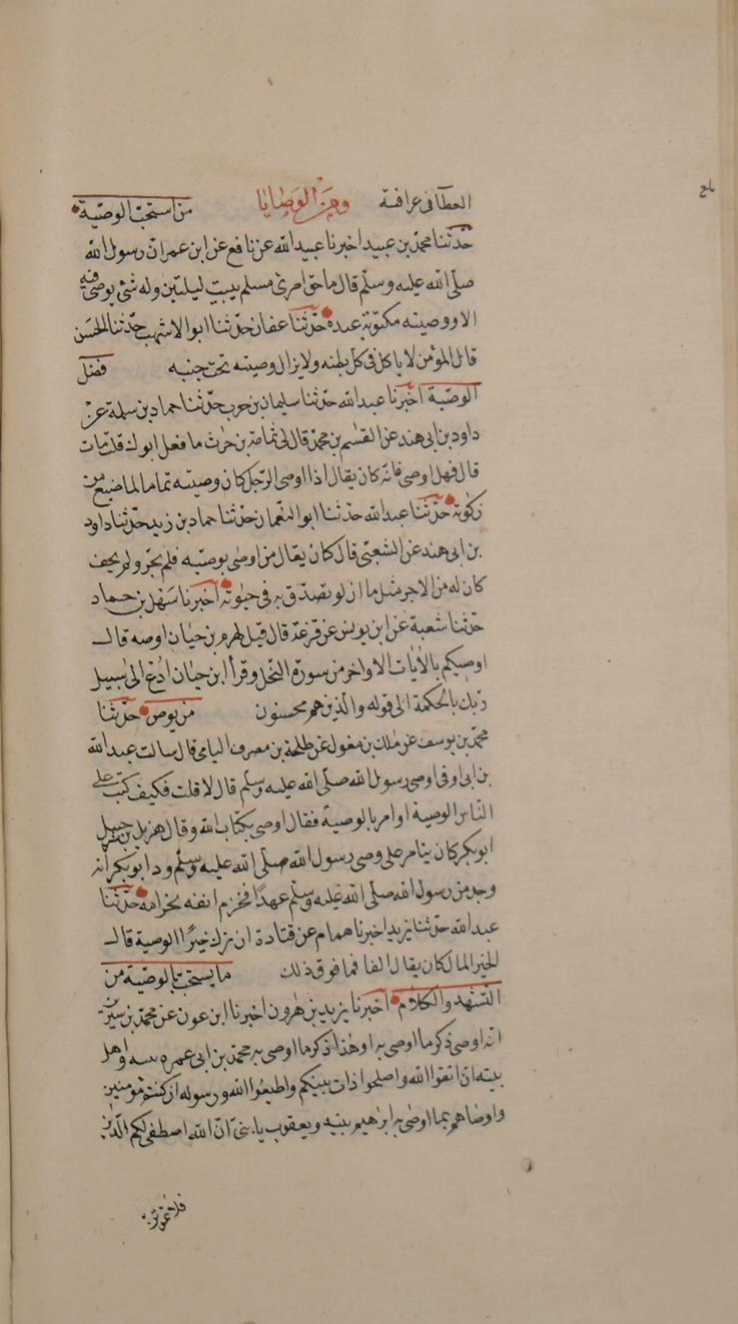 العطآ فى عرافة ومن الوصايا من استحب الوصية
حدثنا محمد بن عبيد اخبرنا عبيد الله عن نافع عن ابن عمر ان رسول الله
صلى الله عليه وسلم قال ما حق امرئ مسلم يبيت ليلتين وله شئ يوصى فيه
الا ووصيته مكتوبة عنده حدثنا عفان حدثنا ابو الاشهب حدثنا الحسن
قال المؤمن لا ياكل فى كل بطنه ولا يزال وصيته تحت جنبه فضل
الوصية اخبرنا عبد الله حدثنا سليمان بن حرب حدثنا حماد بن سلمة عن
داود بن ابى هند عن القسم بن محمد قال لى ثمامة بن حزن ما فعل ابوك قلت مات
قال فهل اوصى فانه كان يقال اذا اوصى الرجل كان وصيته تماما لما ضيع من
زكوته حدثنا عبد الله حدثنا ابو النعمان حدثنا حماد بن زيد حدثنا داود
بن ابى هند عن الشعبى قال كان يقال من اوصى بوصية فلم يجر ولم يحف
كان له من الاجر مثل ما ان لو تصدق به فى حيوته اخبرنا سهل بن حماد
حدثنا شعبة عن ابن يونس عن قزعة قال قيل لهرم بن حيان اوصه قال
اوصيكم بالايات الاواخر من سورة النحل وقرأ ابن حيان ادع الى سبيل
ربك بالحكمة الى قوله والذين هم محسنون من يوص حدثنا
محمد بن يوسف عن ملك بن مغول عن طلحة بن مصرف اليامى قال سالت عبد الله
بن ابى اوفى اوصى رسول الله صلى الله عليه وسلم قال لا قلت فكيف كتب على
الناس الوصية او امر بالوصية فقال اوصى بكتاب الله وقال هزيل بن شرحبيل
ابو بكر كان يتامر على وصى رسول الله صلى الله عليه وسلم ود ابو بكر انه
وجد من رسول الله صلى الله عليه وسلم عهدا فخزم انفه بخزامة حدثنا
عبد الله حدثنا يزيد اخبرنا همام عن قتادة ان ترك خيرا الوصية قال
الخير المال كان يقال الفا فما فوق ذلك ما يستحب بالوصية من
التشهد والكلام اخبرنا يزيد بن هرون اخبرنا ابن عون عن محمد بن سيرين
انه اوصى ذكر ما اوصى به او هذا ذكر ما اوصى به محمد بن ابى عمرة بنيه واهل
بيته ان اتقوا الله واصلحوا ذات بينكم واطيعوا الله ورسوله ان كنتم مؤمنين
واوصاهم بما اوصى به ابرهيم بنيه ويعقوب يا بنى ان الله اصطفى لكم الدين
فلا تموتن